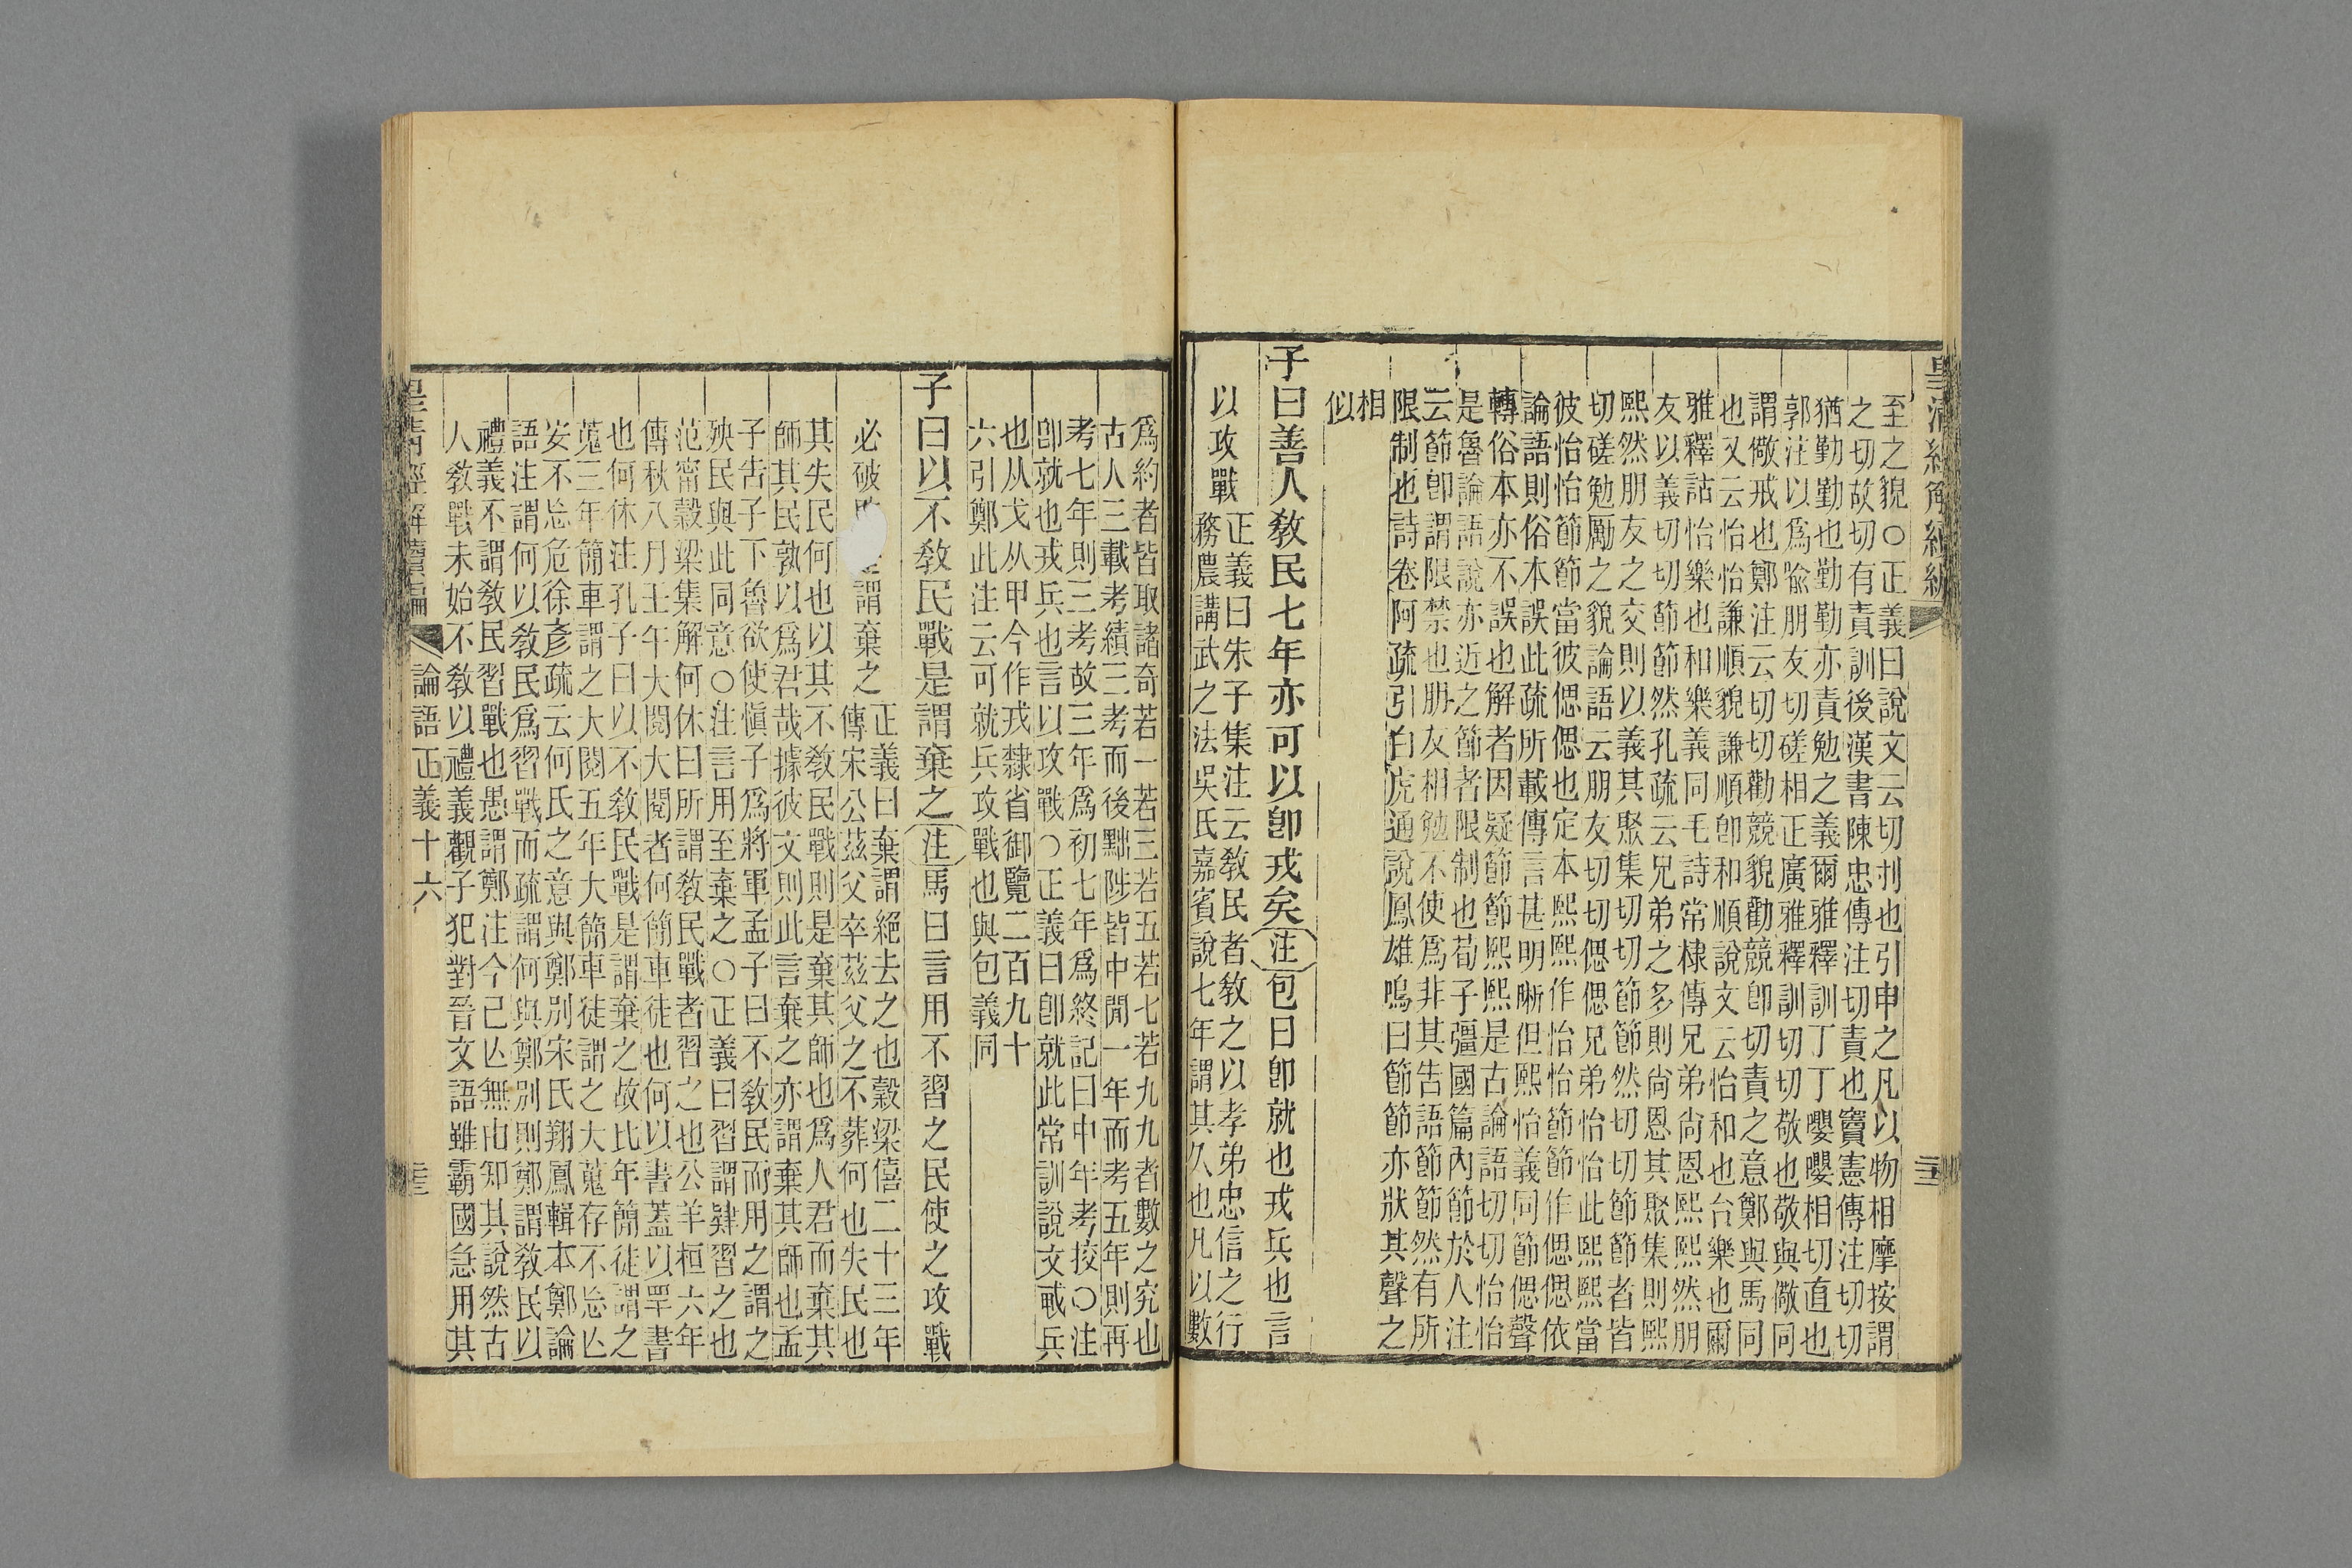 至之貌○正義曰說文云切刌也引申之凡以物相摩按謂
之切故切有責訓後漢書陳忠傳注切責也竇憲傳注切切
猶勤勤也勤勤亦責勉之義爾雅釋訓丁丁嚶嚶相切直也
郭注以爲喩朋友切磋相正廣雅釋訓切切敬也敬與儆同
謂儆戒也鄭注云切切勸競貌勸競卽切責之意鄭與馬同
也又云怡怡謙順貌謙順卽和順說文云怡和也台樂也爾
雅釋詁怡樂也和樂義同毛詩常棣傳兄弟尙恩熙熙然朋
友以義切切節節然孔疏云兄弟之多則尙恩其聚集則熙
熙然朋友之交則以義其聚集切切節節然切切節節者皆
切磋勉厲之貌論語云朋友切切偲偲兄弟怡怡此熙熙當
彼怡怡節節當彼偲偲也定本熙熙作怡怡節節作偲偲依
論語則俗本誤此疏所載傳言甚明晰但熙怡義同節偲聲
轉俗本亦不誤也解者因疑節節熙熙是古論語切切怡怡
是魯論語說亦近之節者限制也荀子彊國篇內節於人注
云節卽謂限禁也朋友相勉不使爲非其告語節節然有所
限制也詩卷阿疏引白虎通說鳳雄鳴曰節節亦狀其聲之
相
似
子曰善人敎民七年亦可以卽戎矣注包曰卽就也戎兵也言
以攻戰
正義曰朱子集注云敎民者敎之以孝弟忠信之行
務農講武之法吳氏嘉賓說七年謂其久也凡以數
爲約者皆取諸奇若一若三若五若七若九九者數之究也
古人三載考績三考而後黜陟皆中閒一年而考五年則再
考七年則三考故三年爲初七年爲終記曰中年考挍○注
卽就也戎兵也言以攻戰○正義曰卽就此常訓說文戒兵
也从戈从甲今作戎隸省御覽二百九十
六引鄭此注云可就兵攻戰也與包義同
子曰以不敎民戰是謂棄之注馬曰言用不習之民使之攻戰
必破 謂棄之
正義曰棄謂絕去之也穀梁僖二十三年
傳宋公茲父卒茲父之不葬何也失民也
其失民何也以其不敎民戰則是棄其師也爲人君而棄其
師其民孰以爲君哉據彼文則此言棄之亦謂棄其師也孟
子吿子下魯欲使愼子爲將軍孟子曰不敎民而用之謂之
殃民與此同意○注言用至棄之○正義曰習謂肄習之也
范甯穀梁集解何休曰所謂敎民戰者習之也公羊桓六年
傳秋八月壬午大閱大閱者何簡車徒也何以書蓋以罕書
也何休注孔子曰以不敎民戰是謂棄之故比年簡徒謂之
蒐三年簡車謂之大閱五年大簡車徒謂之大蒐存不忘亾
安不忘危徐彥疏云何氏之意與鄭別宋氏翔鳳輯本鄭論
語注謂何以敎民爲習戰而疏謂何與鄭別則鄭謂敎民以
禮義不謂敎民習戰也愚謂鄭注今已亾無由知其說然古
人敎戰未始不敎以禮義觀子犯對晉文語雖霸國急用其
論語正義十六